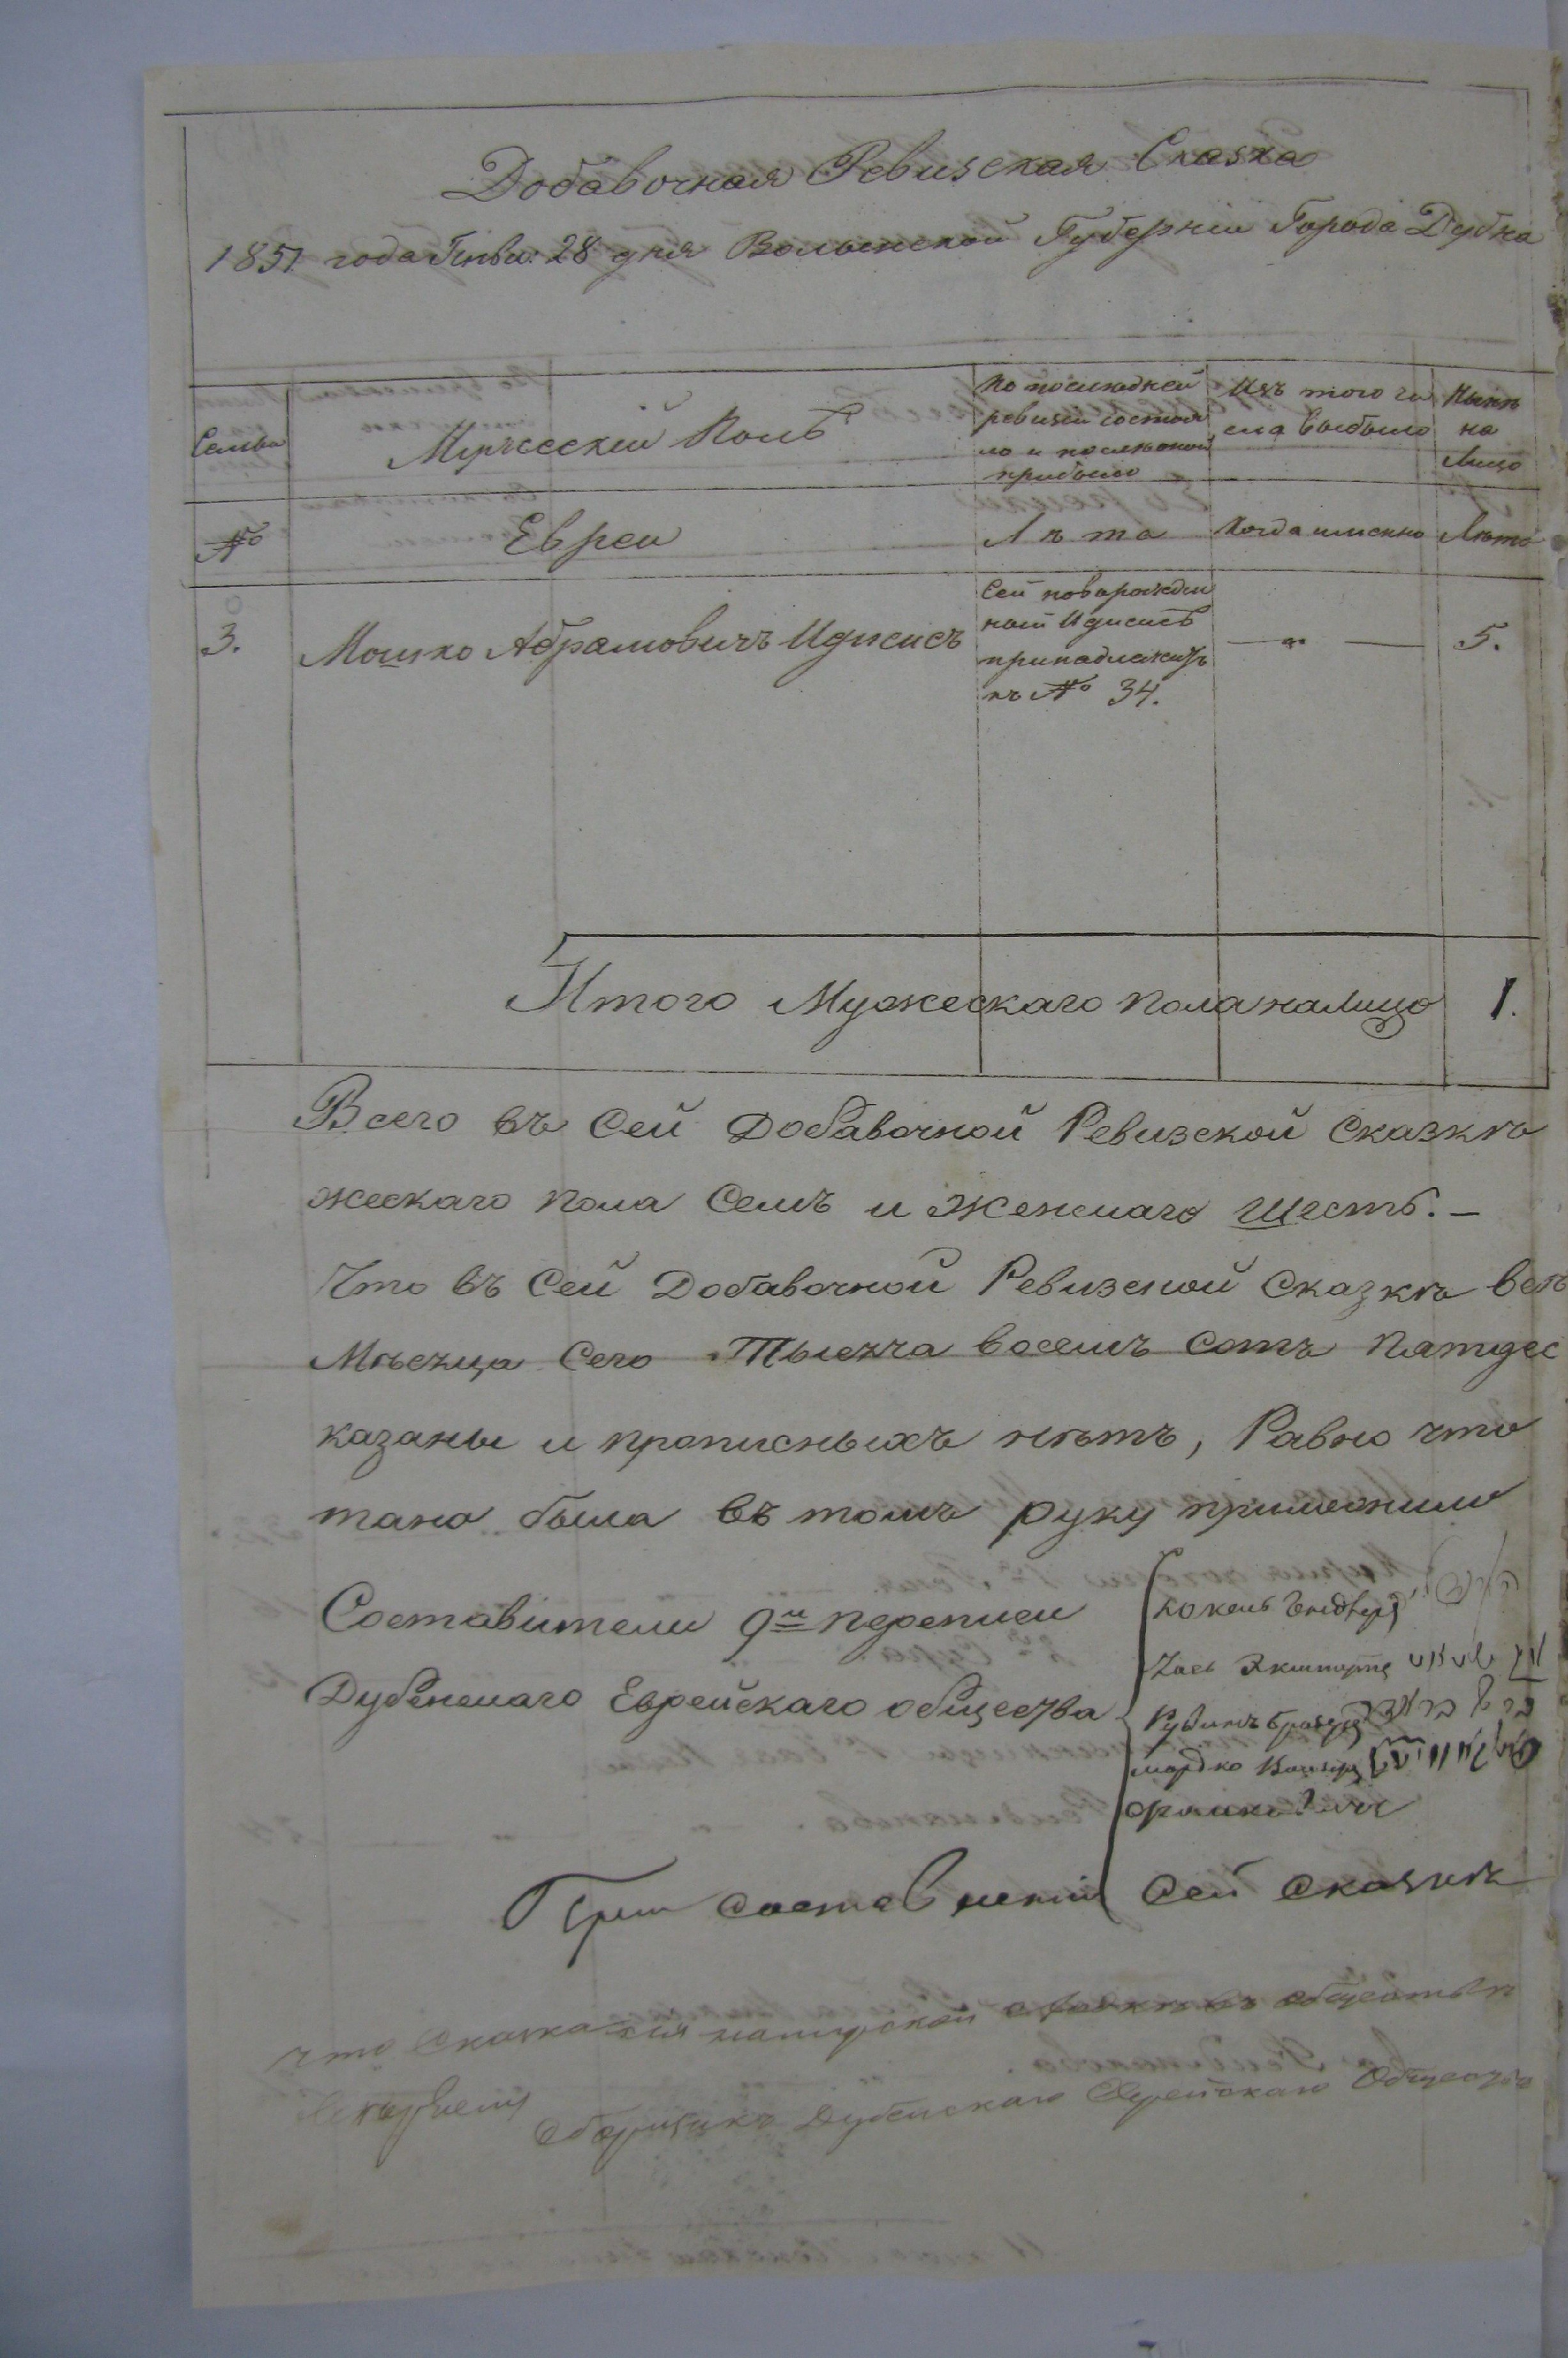 Добавочная Ревизская Сказка
1851 года Генва: 28 дня Волынской Губерніи Города Дубна
Семьи
Мужескій Полъ
По последней
ревизіи состоя
ло и после оной
прибыло
Изъ того чи
сла выбыло
Ныне
на
Лицо
№
Евреи
Лѣта
Когда именно
Лѣта
3.
Мошко Абрамовичъ Идисисъ
Сей новорожден
ный Идисисъ
принадлежитъ
къ № 34.
— „ —
5.
Итого Мужескаго пола налицо 1.
Всего въ сей Добавочной Ревизской Сказкѣ
жескаго пола семъ и женскаго шесть. —
Что въ сей Добавочной Ревизской Сказкѣ всѣ
Мѣсяца сего Тысяча восемъ сотъ пятдес
казаны и прописныхъ нѣтъ, Равно что
тано была въ томъ руку приложили
Составители 9й переписи
Дубенскаго Еврейскаго общества
Рувинъ
мордко
При составленіи сей сказки
что Сказка сія въ обществѣ
Сборщикъ Дубенскаго Еврейскаго Общества